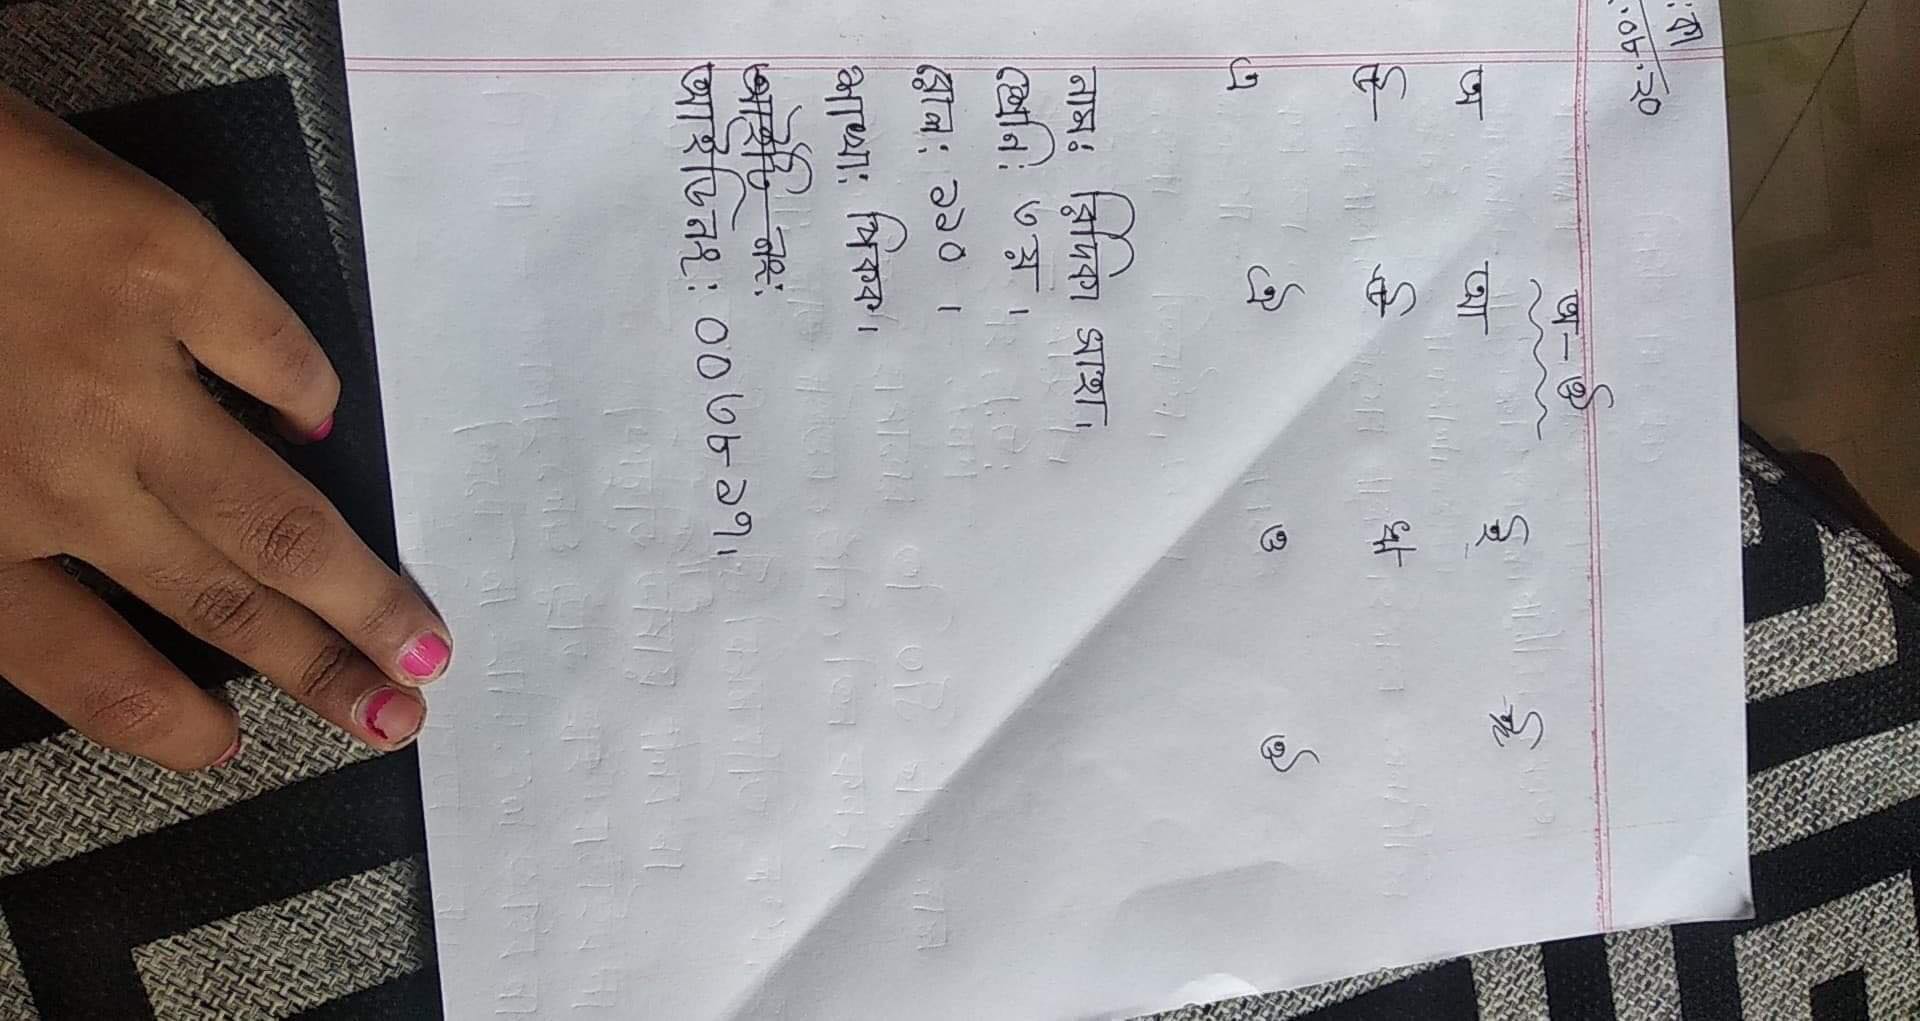 :ক
.০৮.২০
অ-ঔ
অ আ ই ঈ
উ ঊ ঋ
এ ঐ ও ঔ
নামঃ সাহা।
শ্রেনি: ৩য়।
রোল: ১১০।
শাখা:
আইডি নং:
আইডিনং: ০০৩৮১৭।